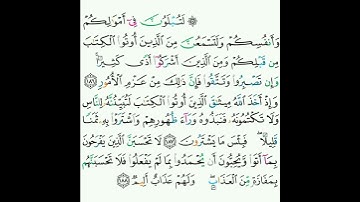 ۞ لَتُبْلَوُنَّ فِىٓ أَمْوَٰلِكُمْ
وَأَنفُسِكُمْ وَلَتَسْمَعُنَّ مِنَ ٱلَّذِينَ أُوتُوا۟ ٱلْكِتَٰبَ
مِن قَبْلِكُمْ وَمِنَ ٱلَّذِينَ أَشْرَكُوٓا۟ أَذًى كَثِيرًا ۚ
وَإِن تَصْبِرُوا۟ وَتَتَّقُوا۟ فَإِنَّ ذَٰلِكَ مِنْ عَزْمِ ٱلْأُمُورِ ١٨٦
وَإِذْ أَخَذَ ٱللَّهُ مِيثَٰقَ ٱلَّذِينَ أُوتُوا۟ ٱلْكِتَٰبَ لَتُبَيِّنُنَّهُۥ لِلنَّاسِ
وَلَا تَكْتُمُونَهُۥ فَنَبَذُوهُ وَرَآءَ ظُهُورِهِمْ وَٱشْتَرَوْا۟ بِهِۦ ثَمَنًا
قَلِيلًا ۖ فَبِئْسَ مَا يَشْتَرُونَ ١٨٧ لَا تَحْسَبَنَّ ٱلَّذِينَ يَفْرَحُونَ
بِمَآ أَتَوا۟ وَّيُحِبُّونَ أَن يُحْمَدُوا۟ بِمَا لَمْ يَفْعَلُوا۟ فَلَا تَحْسَبَنَّهُم
بِمَفَازَةٍ مِّنَ ٱلْعَذَابِ ۖ وَلَهُمْ عَذَابٌ أَلِيمٌ ١٨٨